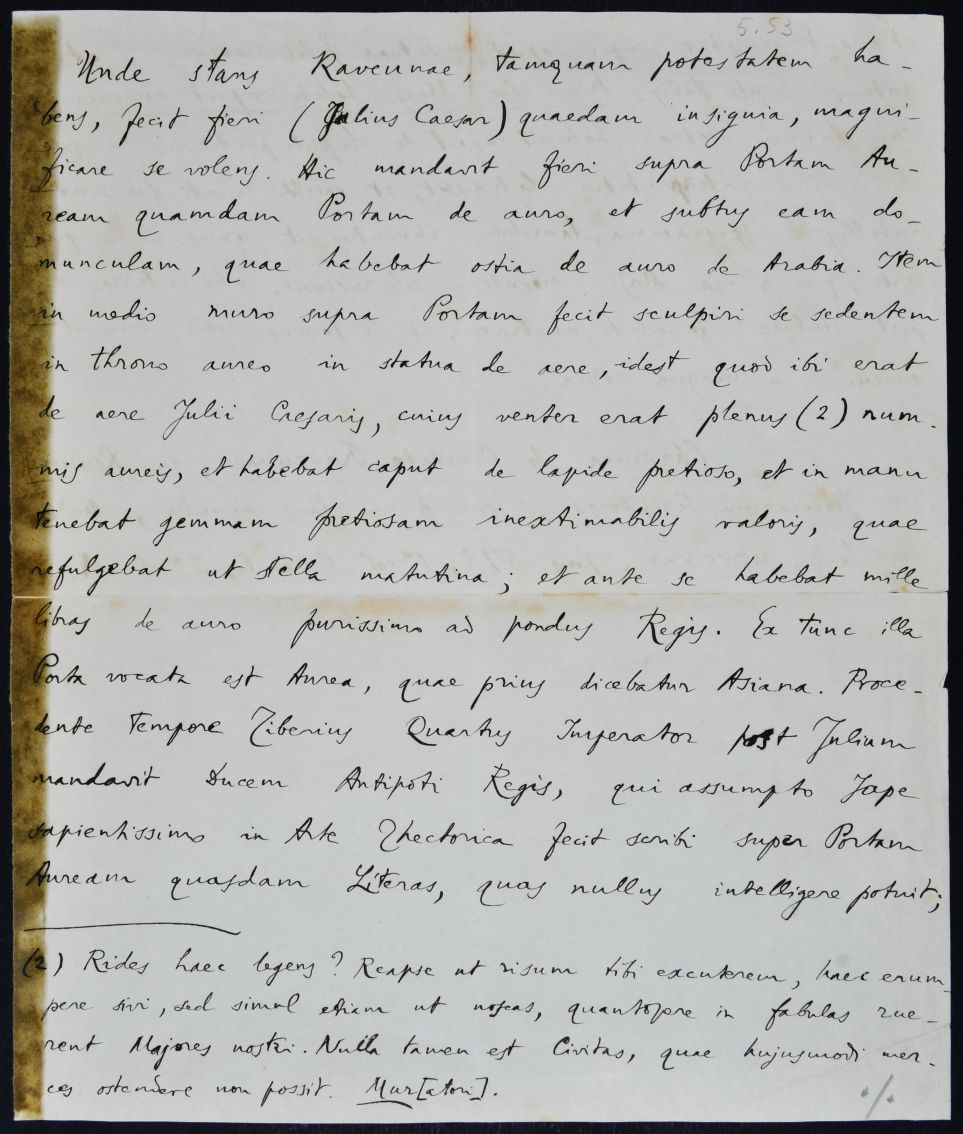 5.53
Unde stans Ravennae, tamquam potestatem ha-
bens, fecit fieri (Julius Caesar) quaedam insignia, magni-
ficare se volens. Hic mandavit fieri supra Portam Au-
ream quamdam Portam de auro, et subtus eam do-
munculam, quae habebat ostia de auro de Arabia. Item
in medio muro supra Portam fecit sculpiri se sedentem
in throno aureo in statua de aere, idest quod ibi erat
de aere Julii Caesaris, cuius venter erat plenus (2) num-
mis aureis, et habebat caput de lapide pretioso, et in manu
tenebat gemmam pretiosam inextimabilis valoris, quae
refulgebat ut stella matutina; et ante se habebat mille
libras de auro purissimo ad pondus Regis. Ex tunc illa
Porta vocata est Aurea, quae prius dicebatur Asiana. Proce-
dente tempore Tiberius Quartus Imperator post Julium
mandavit Ducem Antipoti Regis, qui assumpto Jape
sapientissimo in Arte Rhectorica fecit scribi super Portam
Auream quasdam Literas, quas nullus intelligere potuit;
(2) Rides haec legens? Reapse ut risum tibi excuterem, haec erum-
pere sivi, sed simul etiam ut noscas, quantopere in fabulas rue-
rent Majores nostri. Nulla tamen est Civitas, quae hujusmodi mer-
ces ostendere non possit. Mur[atori].
./.